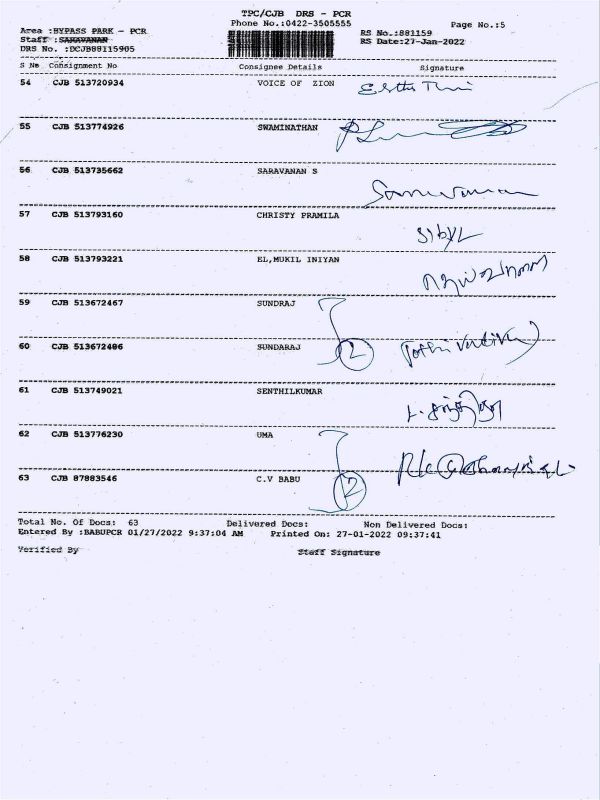 TPC/CJB DRS - PCR
Phone No.:0422-3505555
Page No.:5
Area :BYPASS PARK - PCR
Staff :SARAVANAN
DRS No. :DCJB88115905
RS No.:881159
RS Date:27-Jan-2022
S No Consignment No Consignee Details Signature
54 CJB 513720934 VOICE OF ZION
55 CJB 513774926 SWAMINATHAN
56 CJB 513735662 SARAVANAN S
57 CJB 513793160 CHRISTY PRAMILA SIbyL
58 CJB 513793221 EL,MUKIL INIYAN
59 CJB 513672467 SUNDRAJ
60 CJB 513672486 SUNDARAJ 2
61 CJB 513749021 SENTHILKUMAR
62 CJB 513776230 UMA
63 CJB 87883546 C.V BABU 2
Total No. Of Docs: 63 Delivered Docs: Non Delivered Docs:
Entered By :BABUPCR 01/27/2022 9:37:04 AM Printed On: 27-01-2022 09:37:41
Verified By Staff Signature